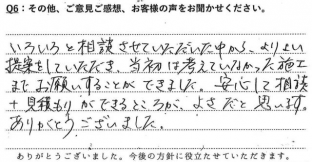 Q6：その他、ご意見ご感想、お客様の声をお聞かせください。
いろいろと相談させていただいた中から、よりよい
提案をしていただき、当初は考えていなかった施工
までお願いすることができました。安心して相談
＋見積もりができるところが、よさだと思います。
ありがとうございました。
ありがとうございました。今後の方針に役立たせていただきます。